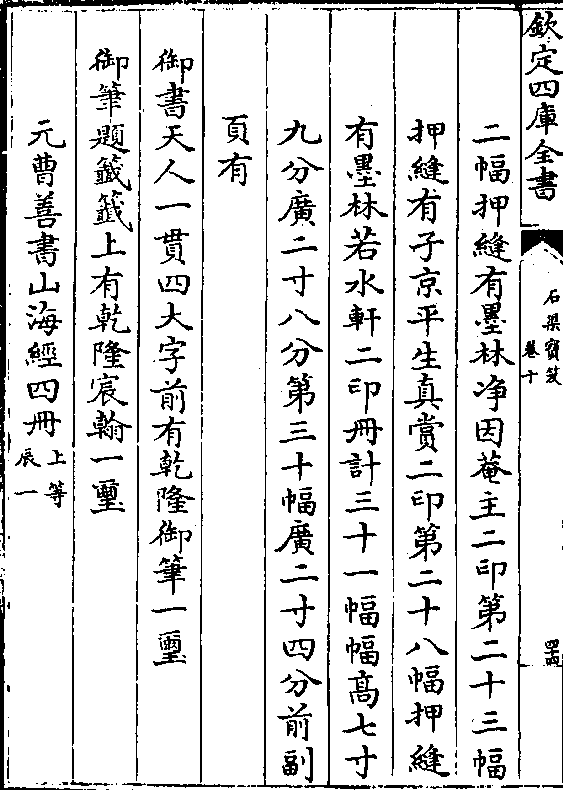 欽定四庫全書
石渠寶笈
卷十
四十四
二幅押縫有墨林净因菴主二印第二十三幅
押縫有子京平生真賞二印第二十八幅押縫
有墨林若水軒二印冊計三十一幅幅髙七寸
九分廣二寸八分第三十幅廣二寸四分前副
頁有
御書天人一貫四大字前有乾隆御筆一璽
御筆題籤籤上有乾隆宸翰一璽
元曹善書山海經四冊上等
辰一